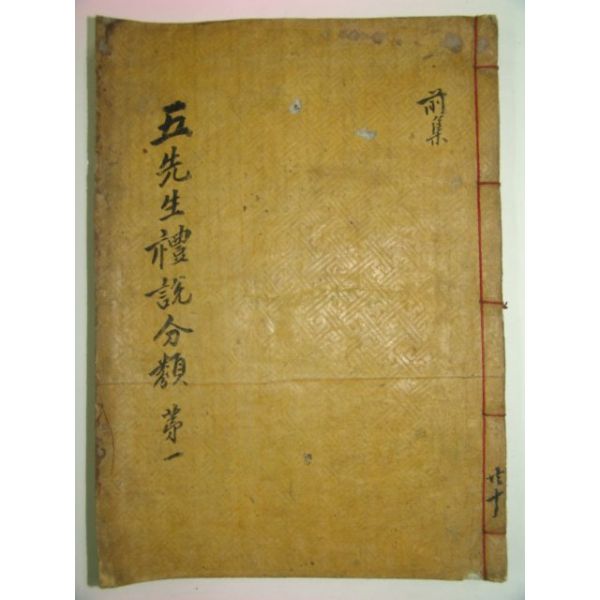 前集
五先生禮說分類 第一
共十